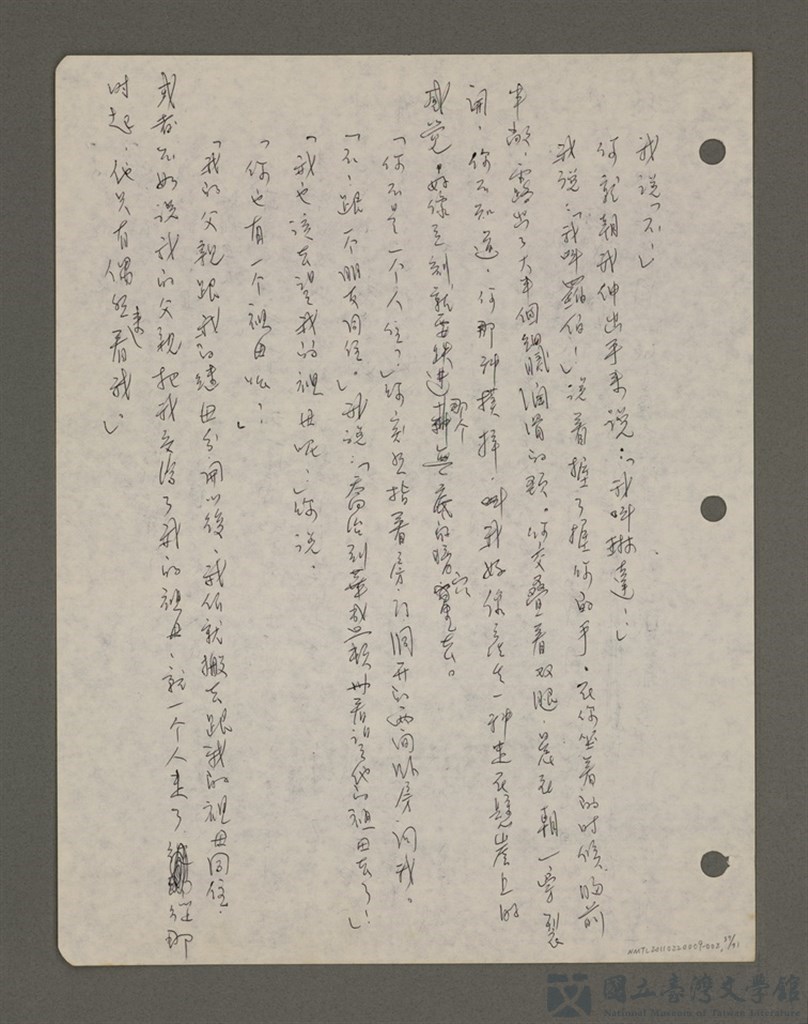 我說「不！」
你就朝我伸出手來說：「我叫琳達！」
我說：「我叫羅伯！」說着握了握你的手。在你坐着的时候，胸前
半敞，露出了大半個細膩潤滑的頸。你交疊着双腿，老在朝一旁裂
開，你不知道，你那种模樣，叫我好像產生一种走在懸崖上的
感觉，好像立刻就要跌進那个無底的暗穴去。
「你不是一个人住？」你突然指着房门洞开的两间卧房问我。
「不，跟一个朋友同住。」我說：「喬治到華盛頓州看望他的祖母去了！」
「我也該去望我的祖母呢！」你說。
「你也有一个祖母呢？」
「我的父親跟我的繼母分開以後，我們就搬去跟我的祖母同住。
或者不如說我的父親把我交給了我的祖母，就一个人走了。從那
时起，他只有偶然來看我」
NMTL20110220009-002, 37/91
國立臺灣文學館
National Museum of Taiwan Literature